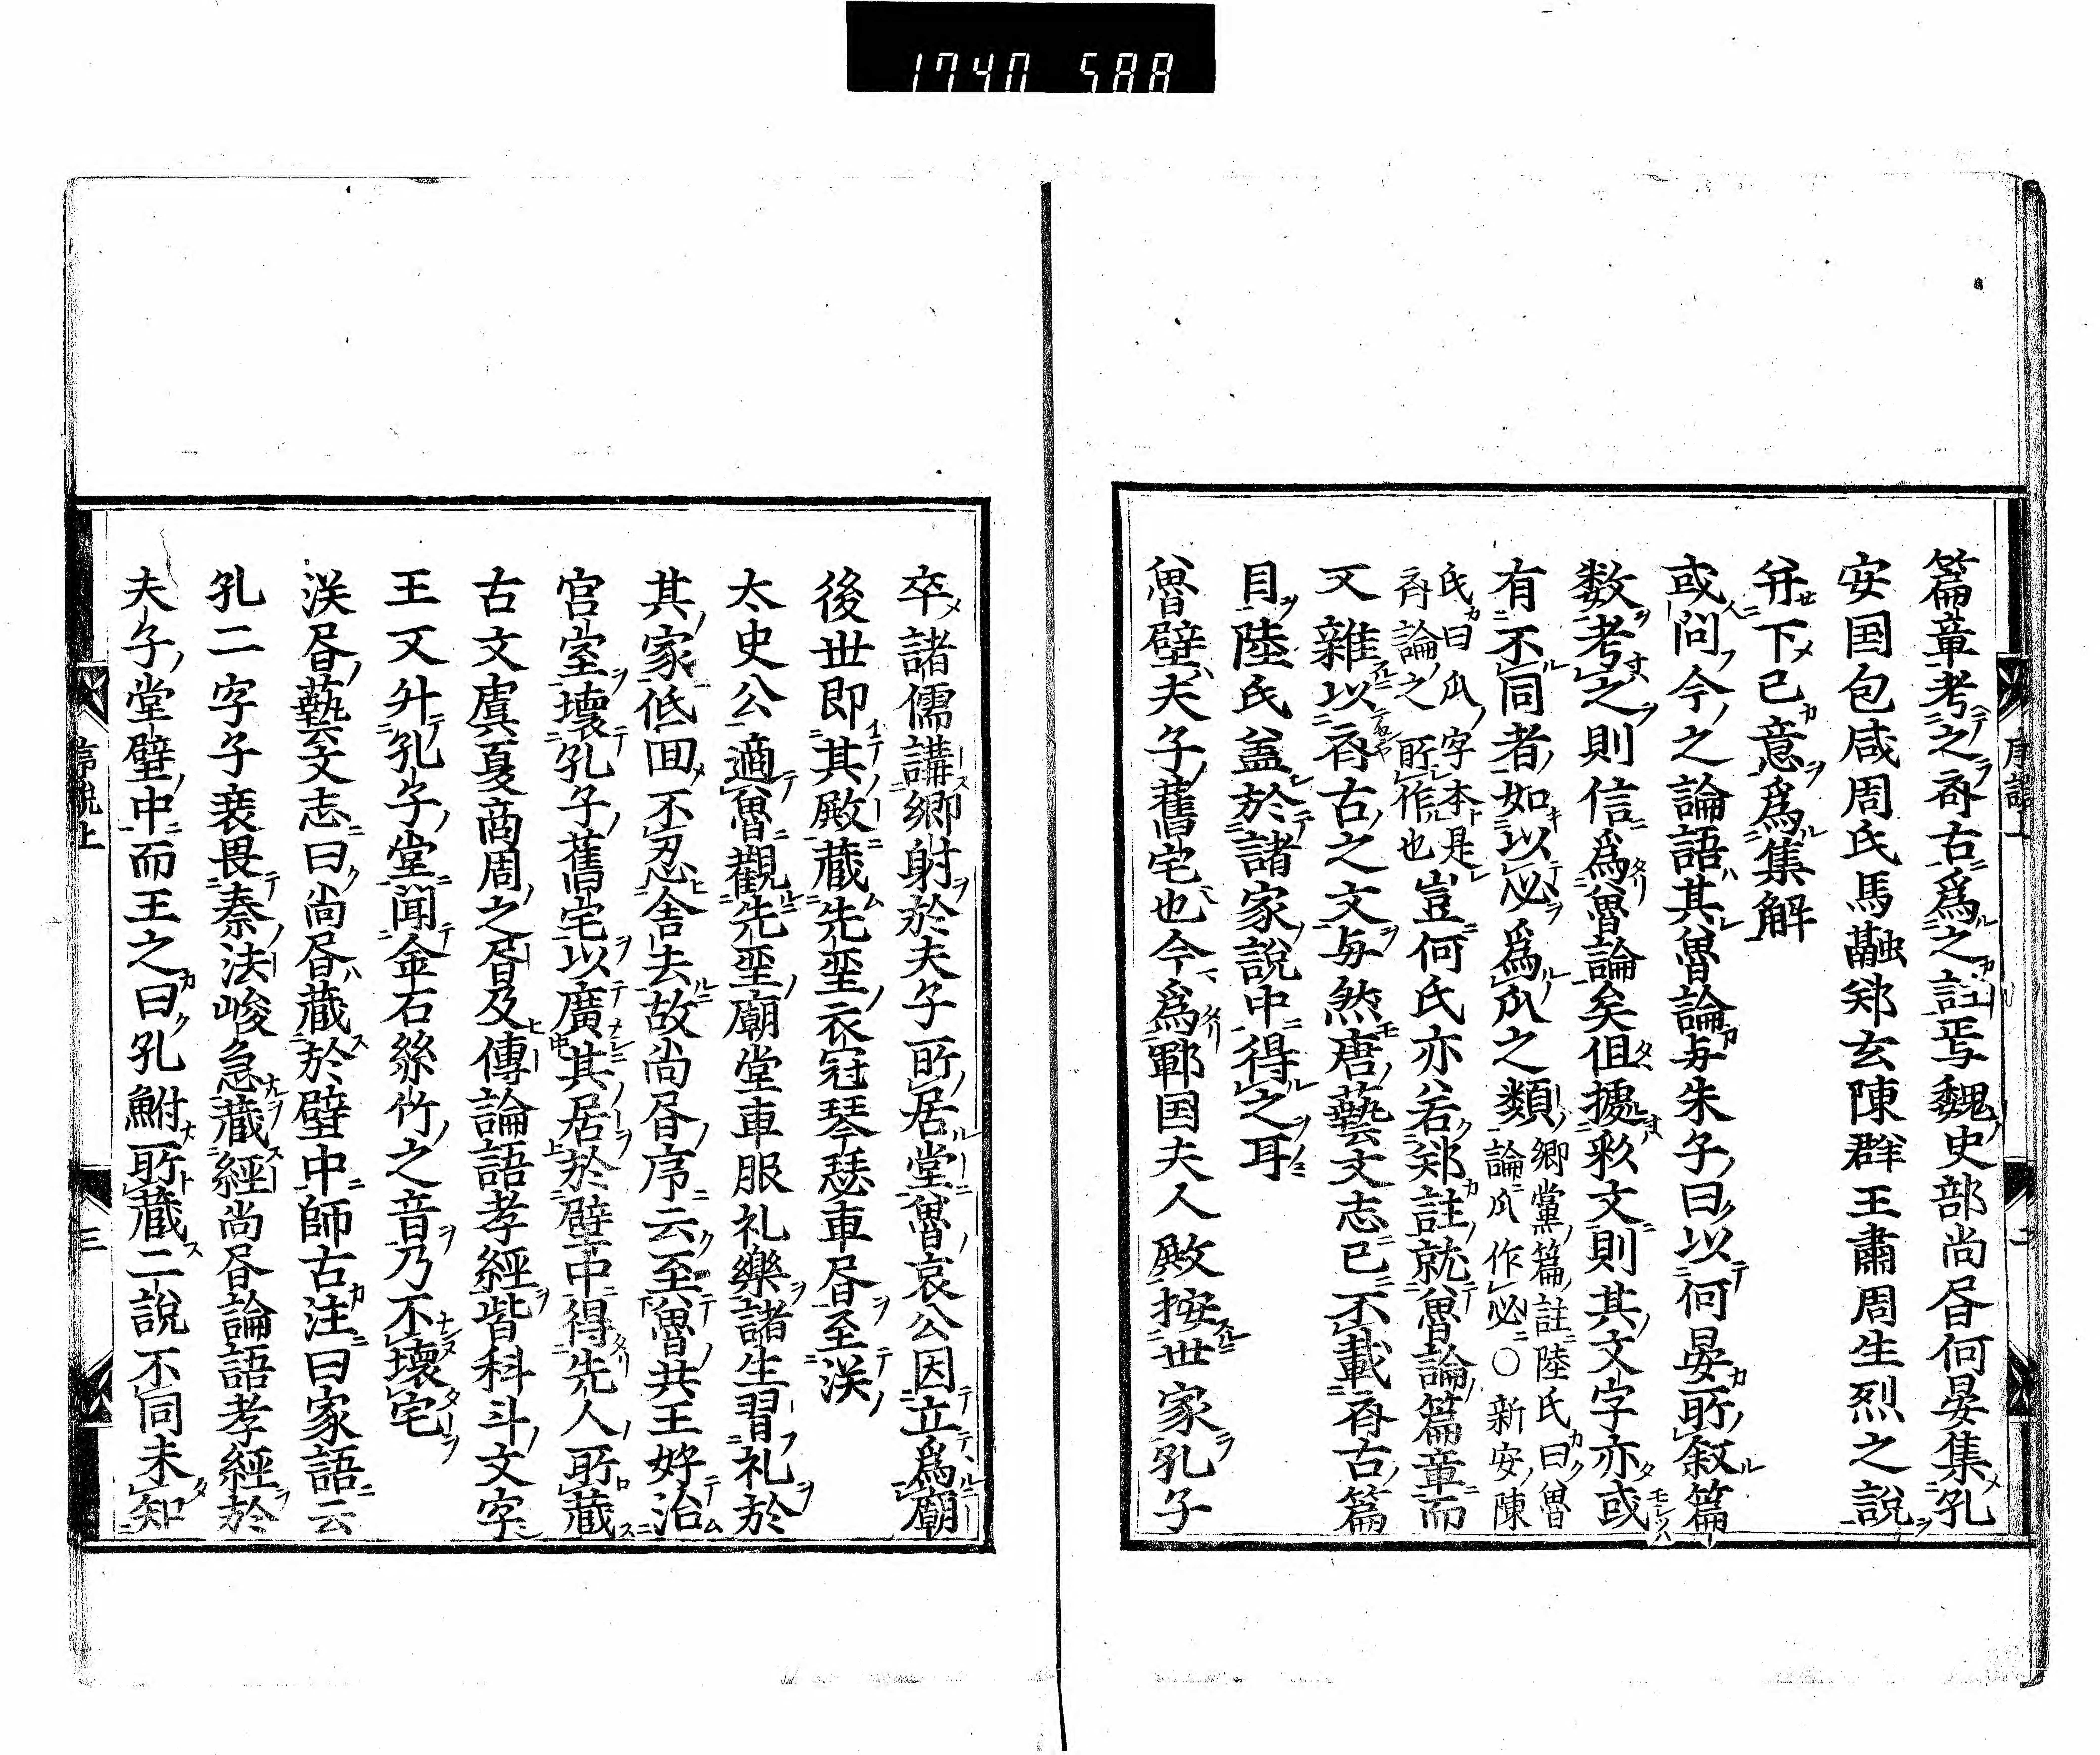 1740 588
篇章考之斉古爲之註焉魏史部尚昏何晏集孔
安国包咸周氏馬融郑玄陳群王肅周生烈之說
并下己意爲集解
或問今之論語其魯論与朱子曰以何晏所叙篇
数考之則信爲魯論矣但據釈文則其文字亦或
有不同者如以必爲瓜之類
卿黨篇註陸氏曰魯
論瓜作必〇新安陳
氏曰瓜字本是
斉論之所作也
豈何氏亦若郑註就魯論篇章而
又雜以斉古之文与然唐藝文志已不載斉古篇
目陸氏盖於諸家說中得之耳
魯壁夫子舊宅也今爲鄆国夫人殿按世家孔子
卒諸儒講郷射於夫子所居堂魯哀公因立爲廟
後世即其殿蔵先聖衣冠琴瑟車昏至漢
太史公適魯觀先聖廟堂車服礼樂諸生習礼於
其家低囬不忍舎去故尚昏序云至魯共王好治
宫室壊孔子舊宅以廣其居於壁中得先人所蔵
古文虞夏商周之昏及傳論語孝經皆科斗文字
王又升孔子堂聞金石絲竹之音乃不壊宅
漢昏藝文志曰尚昏蔵於壁中師古注曰家語云
孔二字子襄畏秦法峻急蔵經尚昏論語孝經於
夫子堂壁中而王之曰孔鮒所蔵二說不同未知
序説上
三
二